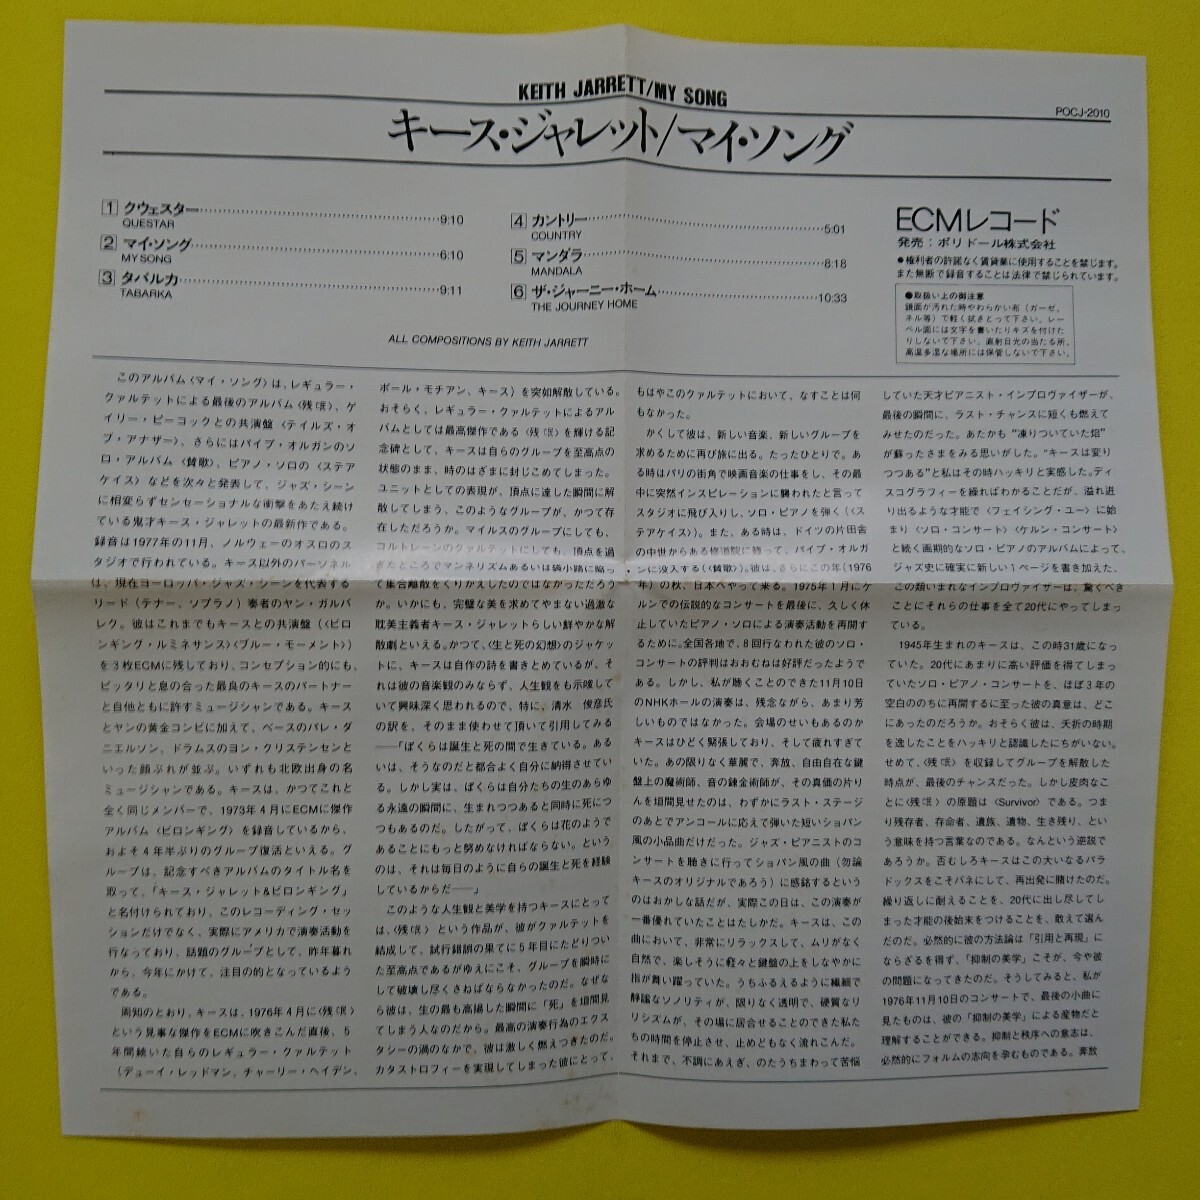 KEITH JARRETT/MY SONG
POCJ-2010
キース・ジャレット/マイ・ソング
1 クウェスター……9:10
QUESTAR
2 マイ・ソング……6:10
MY SONG
3 タバルカ……9:11
TABARKA
4 カントリー……5:01
COUNTRY
5 マンダラ……8:18
MANDALA
6 ザ・ジャーニー・ホーム……10:33
THE JOURNEY HOME
ALL COMPOSITIONS BY KEITH JARRETT
ECMレコード
発売：ポリドール株式会社
●権利者の許諾なく賃貸業に使用することを禁じます。
また無断で録音することは法律で禁じられています。
●取扱い上の御注意
鏡面が汚れた時やわらかい布（ガーゼ、
ネル等）で軽く拭きとって下さい。レー
ベル面には文字を書いたりキズを付けた
りしないで下さい。直射日光の当たる所、
高温多湿な場所には保管しないで下さい。
このアルバム〈マイ・ソング〉は、レギュラー・
クァルテットによる最後のアルバム〈残氓〉、ゲ
イリー・ピーコックとの共演盤〈テイルズ・オ
ブ・アナザー〉、さらにはパイプ・オルガンのソ
ロ・アルバム〈賛歌〉、ピアノ・ソロの〈ステア
ケイス〉などを次々と発表して、ジャズ・シーン
に相変らずセンセーショナルな衝撃をあたえ続け
ている鬼才キース・ジャレットの最新作である。
録音は1977年の11月、ノルウェーのオスロのス
タジオで行われている。キース以外のパーソネル
は、現在ヨーロッパ・ジャズ・シーンを代表する
リード（テナー、ソプラノ）奏者のヤン・ガルバ
レク。彼はこれまでもキースとの共演盤（〈ビロ
ンギング・ルミネサンス〉〈ブルー・モーメント〉）
を3枚ECMに残しており、コンセプション的にも、
ピッタリと息の合った最良のキースのパートナー
と自他ともに許すミュージシャンである。キース
とヤンの黄金コンビに加えて、ベースのパレ・ダ
ニエルソン、ドラムスのヨン・クリステンセンと
いった顔ぶれが並ぶ。いずれも北欧出身の名
ミュージシャンである。キースは、かつてこれと
全く同じメンバーで、1973年4月にECMに傑作
アルバム〈ビロンギング〉を録音しているから、
およそ4年半ぶりのグループ復活といえる。グ
ループは、記念すべきアルバムのタイトル名を
取って、「キース・ジャレット&ビロンギング」
と名付けられており、このレコーディング・セッ
ションだけでなく、実際にアメリカで演奏活動を
行なっており、話題のグループとして、昨年暮れ
から、今年にかけて、注目の的となっているよう
である。
周知のとおり、キースは、1976年4月に〈残氓〉
という見事な傑作をECMに吹きこんだ直後、5
年間続いた自らのレギュラー・クァルテット
（デューイ・レッドマン、チャーリー・ヘイデン、
ポール・モチアン、キース）を突如解散している。
おそらく、レギュラー・クァルテットによるアル
バムとしては最高傑作である〈残氓〉を輝ける記
念碑として、キースは自らのグループを至高点の
状態のまま、時のはざまに封じこめてしまった。
ユニットとしての表現が、頂点に達した瞬間に解
散してしまう、このようなグループが、かつて存
在しただろうか。マイルスのグループにしても、
コルトレーンのクァルテットにしても、頂点を過
ぎたところでマンネリズムあるいは袋小路に陥っ
て集合離散をくりかえしたのではなかっただろう
か。いかにも、完璧な美を求めてやまない過激な
耽美主義者キース・ジャレットらしい鮮やかな解
散劇といえる。かつて、〈生と死の幻想〉のジャケッ
トに、キースは自作の詩を書きとめているが、そ
れは彼の音楽観のみならず、人生観をも示唆して
いて興味深く思われるので、特に、清水 俊彦氏
の訳を、そのまま使わせて頂いて引用してみる
──「ぼくらは誕生と死の間で生きている。ある
いは、そうなのだと都合よく自分に納得させてい
る。しかし実は、ぼくらは自分たちの生のあらゆ
る永遠の瞬間に、生まれつつあると同時に死につ
つもあるのだ。したがって、ぼくらは花のようで
あることにもっと努めなければならない。という
のは、それは毎日のように自らの誕生と死を経験
しているからだ──」
このような人生観と美学を持つキースにとって
は、〈残氓〉という作品が、彼がクァルテットを
結成して、試行錯誤の果てに5年目にたどりつい
た至高点であるがゆえにこそ、グループを瞬時に
して破壊し尽くさねばならなかったのだ。なぜな
ら彼は、生の最も高揚した瞬間に「死」を垣間見
てしまう人なのだから。最高の演奏行為のエクス
タシーの渦のなかで、彼は激しく燃えつきたのだ。
カタストロフィーを実現してしまった彼にとって、
もはやこのクァルテットにおいて、なすことは何
もなかった。
かくして彼は、新しい音楽、新しいグループを
求めるために再び旅に出る。たったひとりで。あ
る時はパリの街角で映画音楽の仕事をし、その最
中に突然インスピレーションに襲われたと言って
スタジオに飛び入りし、ソロ・ピアノを弾く（〈ス
テアケイス〉）。また、ある時は、ドイツの片田舎
の中世からある修道院に籠って、パイプ・オルガ
ンに没入する（〈賛歌〉）。彼は、さらにこの年（1976
年）の秋、日本へやって来る。1975年1月にケ
ルンでの伝説的なコンサートを最後に、久しく休
止していたピアノ・ソロによる演奏活動を再開す
るために。全国各地で、8回行なわれた彼のソロ・
コンサートの評判はおおむねは好評だったようで
ある。しかし、私が聴くことのできた11月10日
のNHKホールの演奏は、残念ながら、あまり芳
しいものではなかった。会場のせいもあるのか
キースはひどく緊張しており、そして疲れすぎて
いた。あの限りなく華麗で、奔放、自由自在な鍵
盤上の魔術師、音の錬金術師が、その真価の片り
んを垣間見せたのは、わずかにラスト・ステージ
のあとでアンコールに応えて弾いた短いショパン
風の小品曲だけだった。ジャズ・ピアニストのコ
ンサートを聴きに行ってショパン風の曲（勿論
キースのオリジナルであろう）に感銘するという
のはおかしな話だが、実際この日は、この演奏が
一番優れていたことはたしかだ。キースは、この
曲において、非常にリラックスして、ムリがなく
自然で、楽しそうに軽々と鍵盤の上をしなやかに
指が舞い躍っていた。うちふるえるように繊細で
静謐なソノリティが、限りなく透明で、硬質なリ
リシズムが、その場に居合せることのできた私た
ちの時間を停止させ、止めどもなく流れこんだ。
それまで、不調にあえぎ、のたうちまわって苦悩
していた天才ピアニスト・インプロヴァイザーが、
最後の瞬間に、ラスト・チャンスに短くも燃えて
みせたのだった。あたかも“凍りついていた焔”
が蘇ったさまをみる思いがした。“キースは変り
つつある”と私はその時ハッキリと実感した。ディ
スコグラフィーを繰ればわかることだが、溢れ迸
り出るような才能で〈フェイシング・ユー〉に始
まり〈ソロ・コンサート〉〈ケルン・コンサート〉
と続く画期的なソロ・ピアノのアルバムによって、
ジャズ史に確実に新しい1ページを書き加えた、
この類いまれなインプロヴァイザーは、驚くべき
ことにそれらの仕事を全て20代にやってしまっ
ている。
1945年生まれのキースは、この時31歳になっ
ていた。20代にあまりに高い評価を得てしまっ
ていたソロ・ピアノ・コンサートを、ほぼ3年の
空白ののちに再開するに至った彼の真意は、どこ
にあったのだろうか。おそらく彼は、夭折の時期
を逸したことをハッキリと認識したにちがいない。
せめて、〈残氓〉を収録してグループを解散した
時点が、最後のチャンスだった。しかし皮肉なこ
とに〈残氓〉の原題は〈Survivor〉である。つま
り残存者、存命者、遺族、遺物、生き残り、とい
う意味を持つ言葉なのである。なんという逆説で
あろうか。否むしろキースはこの大いなるパラ
ドックスをこそバネにして、再出発に賭けたのだ。
繰り返しに耐えることを、20代に出し尽してし
まった才能の後始末をつけることを、敢えて選ん
だのだ。必然的に彼の方法論は「引用と再現」に
ならざるを得ず、「抑制の美学」こそが、今や彼
の問題になってきたのだ。そうしてみると、私が
1976年11月10日のコンサートで、最後の小曲に
見たものは、彼の「抑制の美学」による産物だと
理解することができる。抑制と秩序への意志は、
必然的にフォルムの志向を孕むものである。奔放